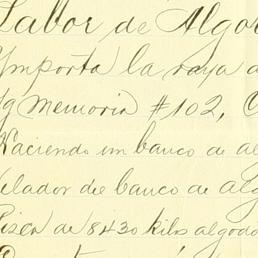 Labor de Algo
Importa la raya d
Sg Memoria #102, C
Haciendo un banco de al
Velador del banco de alg
Pisca de 8430 kilos algodo